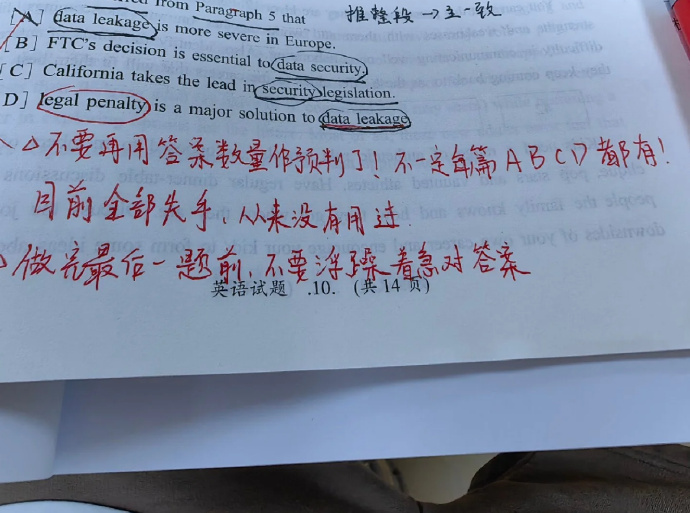 from Paragraph 5 that 推整段→主一致
[A] data leakage is more severe in Europe.
[B] FTC's decision is essential to data security.
[C] California takes the lead in security legislation.
D] legal penalty is a major solution to data leakage
△不要再用答案数量作预判了！不一定每篇ABCD都有！
目前全部失手，从来没有用过.
做完最后一题前，不要浮躁着急对答案
英语试题 .10. (共14页)